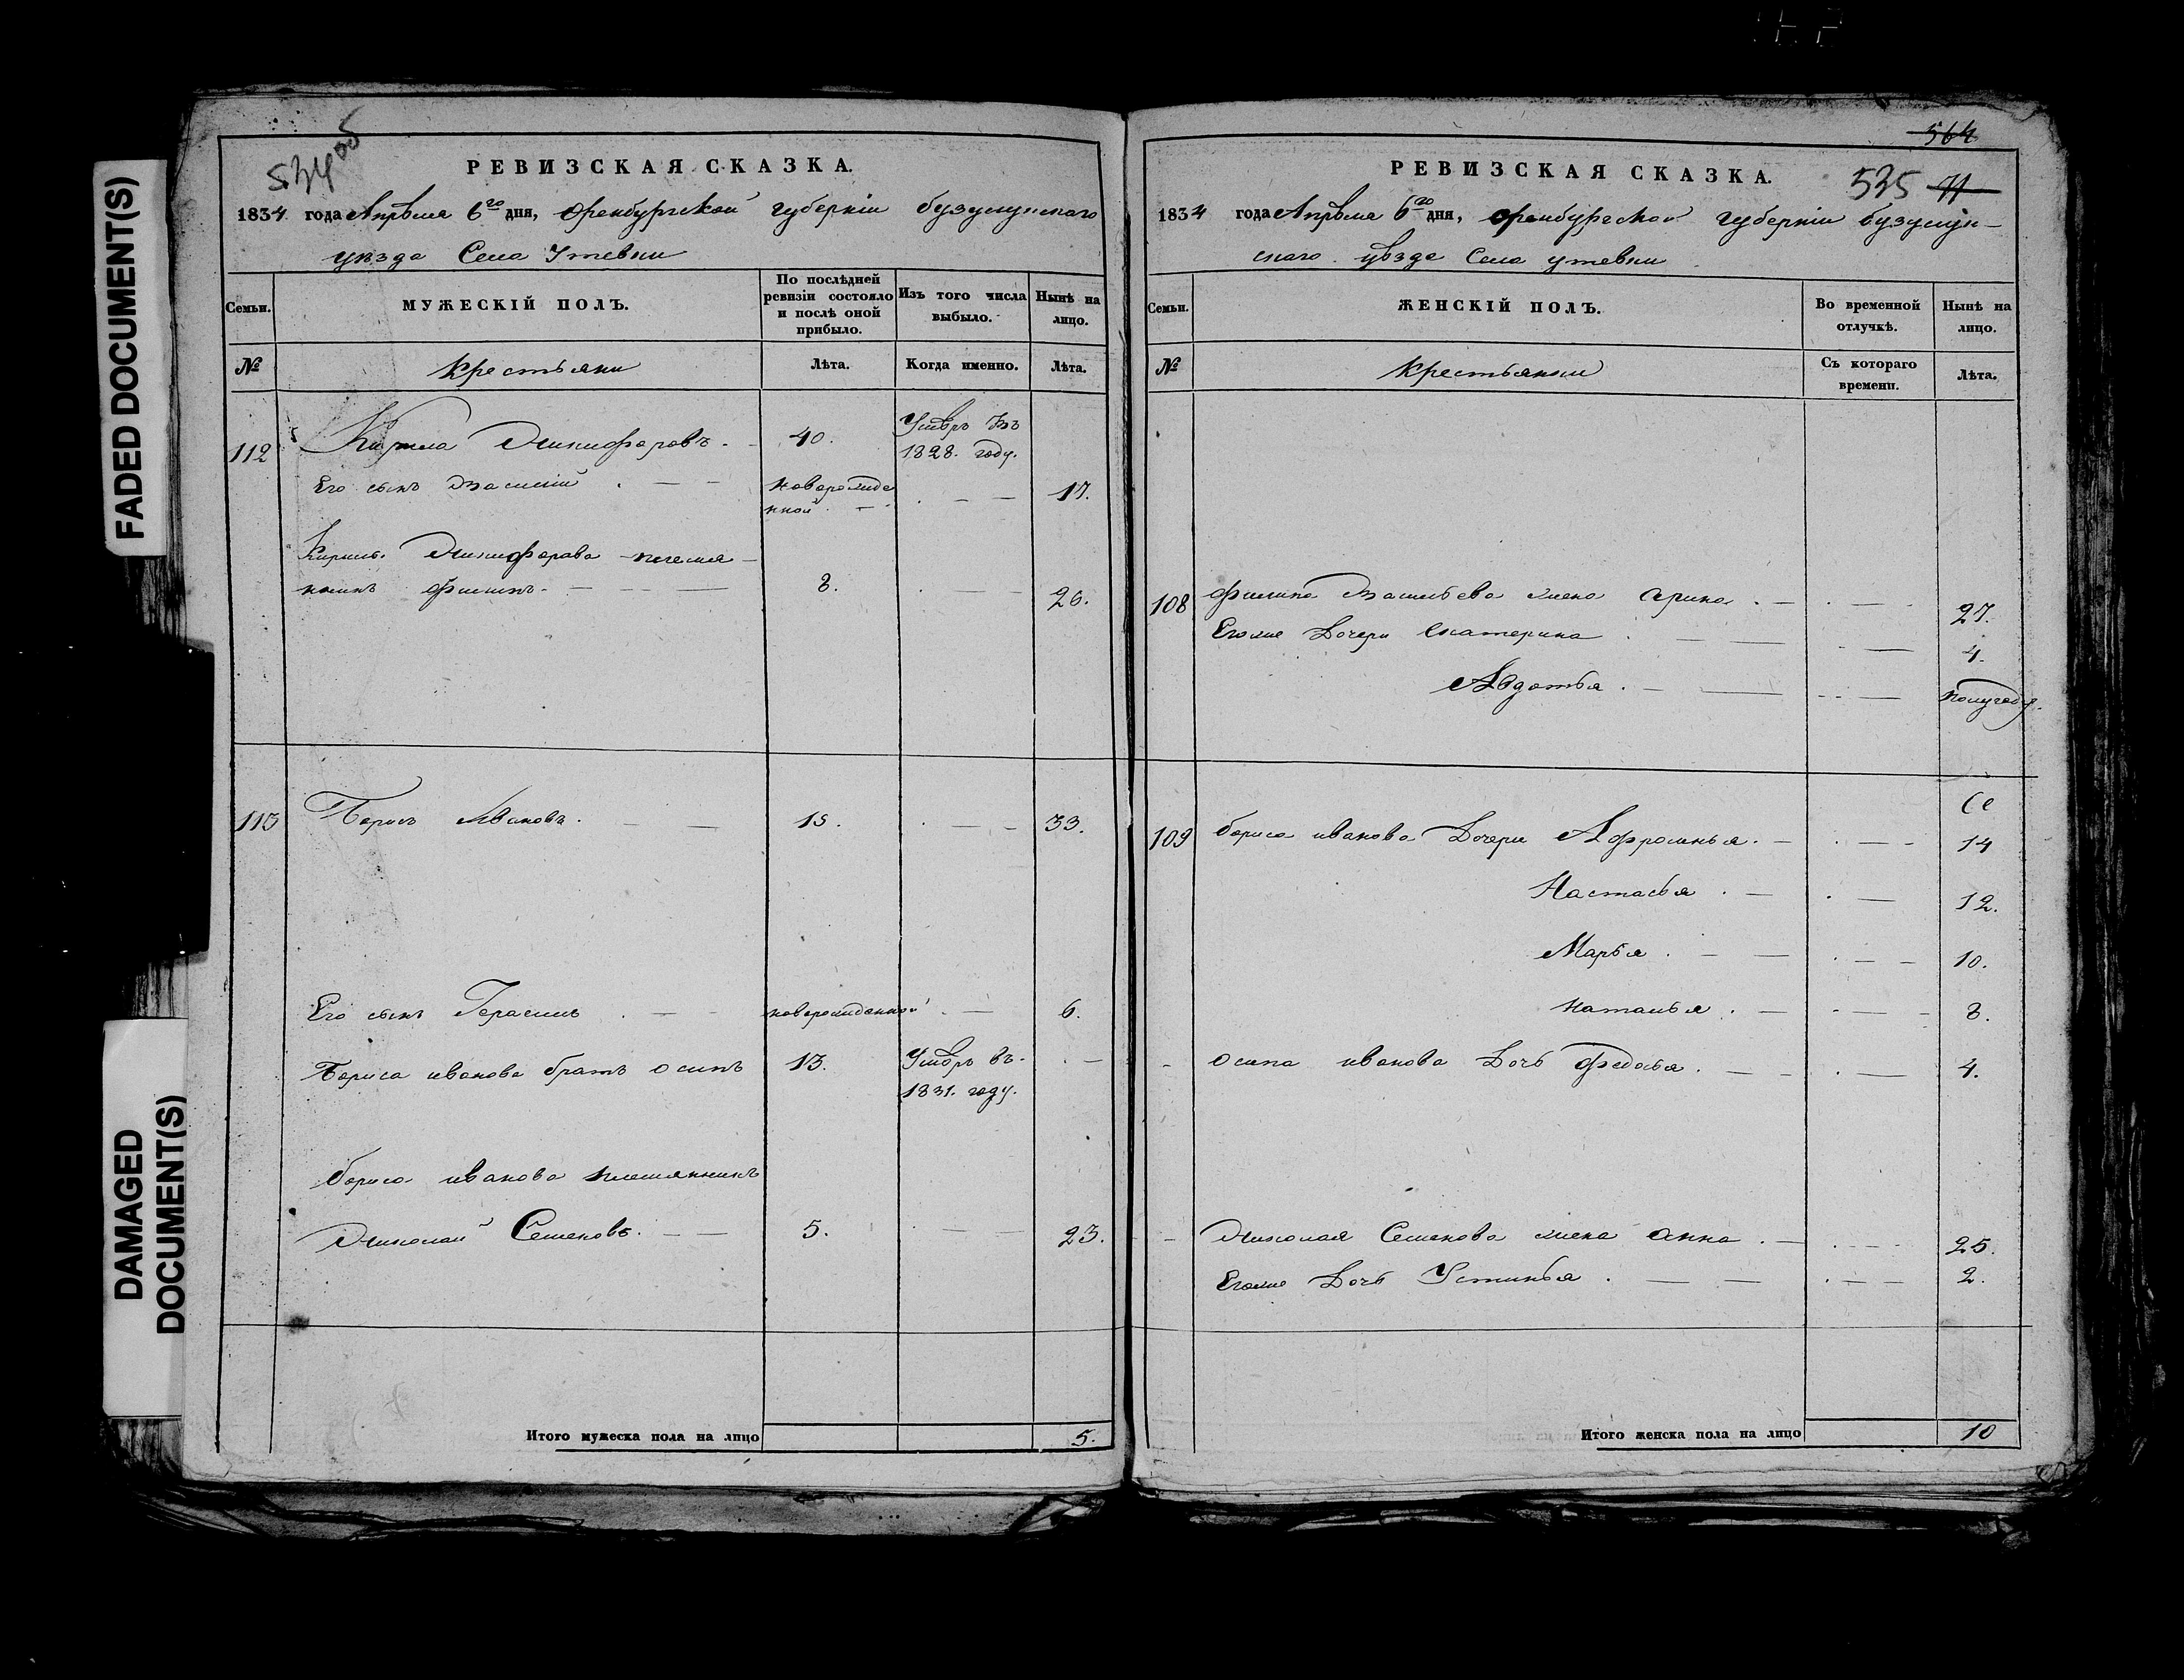 FADED DOCUMENT(S)
DAMAGED
DOCUMENT(S)
534 об
РЕВИЗСКАЯ СКАЗКА.
1834 года Апреля 6го дня, Оренбургской губернии бузулунскаго
уезда Села Утевки
Семьи.
МУЖЕСКІЙ ПОЛЪ.
По послѣдней ревизіи состояло и послѣ оной прибыло.
Изъ того числа выбыло.
Нынѣ на лицо.
№
Крестьяни
Лѣта.
Когда именно.
Лѣта.
112 Кирила Никифоровъ. 40. Умѣръ въ
1828. году.
Его сынъ Василій новорожде 17.
нной
Кирилы Никифорова племя-
нникъ Филипъ. 8. 26.
113 Борисъ Ивановъ. 15. 33.
Его сынъ Герасимъ новорожденной 6.
Бориса иванова братъ осипъ 13. Умѣръ въ
1831. году.
бориса иванова племянникъ
Николай Семеновъ. 5. 23.
Итого мужеска пола на лицо 5.
564
РЕВИЗСКАЯ СКАЗКА. 535 71
1834 года Апреля 6го дня, оренбургской губерніи бузулун-
скаго уезда Села утевки
Семьи.
ЖЕНСКІЙ ПОЛЪ.
Во временной отлучкѣ.
Нынѣ на лицо.
№
Крестьянки
Съ котораго времени.
Лѣта.
108 Филипа Васильева жена Арина 27.
Егоже Дочери екатерина 4.
Авдотья полугоду.
109 бориса иванова Дочери Афросинья 14
Настасья 12.
Марья 10.
наталья 8.
осипа иванова Дочь федосья 4.
Николая Семенова жена анна 25.
Егоже Дочь Устинья 2.
Итого женска пола на лицо 10